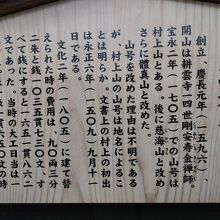 創立、慶長元年（一五九六）
開山は耕雲寺一四世剛安寿金禅師。
宝永二年（一七〇五）での山号は
村上山とある。後に慈海山と改め
さらに體真山と改めた。
山号を改めた理由は不明である
が、村上山の山号は地名によるこ
とは明らか。文書上の村上の初出
は永正六年（一五〇九）九月十一
日である。
文化二年（一八〇五）に建て替
えられた時の費用は、九〇両三分
二朱と銭一〇三五七三文。す
べて銭にすると六五一六
文であった。当時の大工手当は一